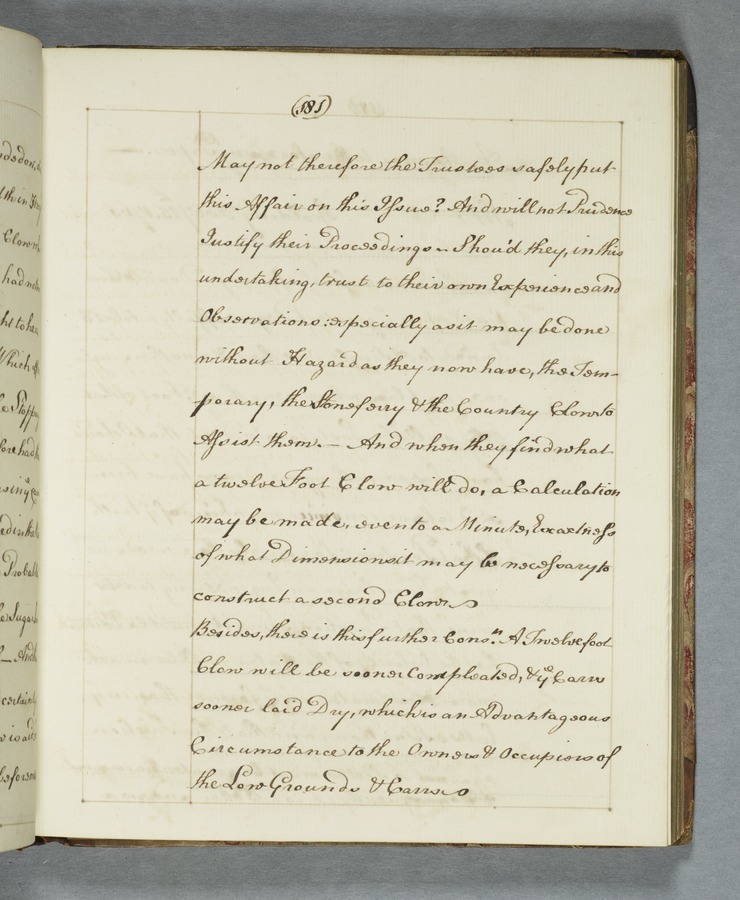 181
May not therefore the Trustees safely put
this Affair on this Issue? And will not Prudence
Justify their Proceedings - Shou'd they, in this
undertaking, trust to their own Experience and
Observations: especially as it may be done
without Hazard as they now have, the Tem-
porary, the Stoneferry & the Country Clow to
Assist them. - And when they find what
a twelve Foot Clow will do, a Calculation
may be made, even to a Minute, Exactness
of what Dimensions it may be necessary to
construct a second Clow
Besides, there is this further Cons.n A Twelve foot
Clow will be sooner Compleated, & ye Carrs
sooner laid Dry, which is an Advantageous
Circumstance to the Owners & Occupiers of
the Low Grounds & Carrs